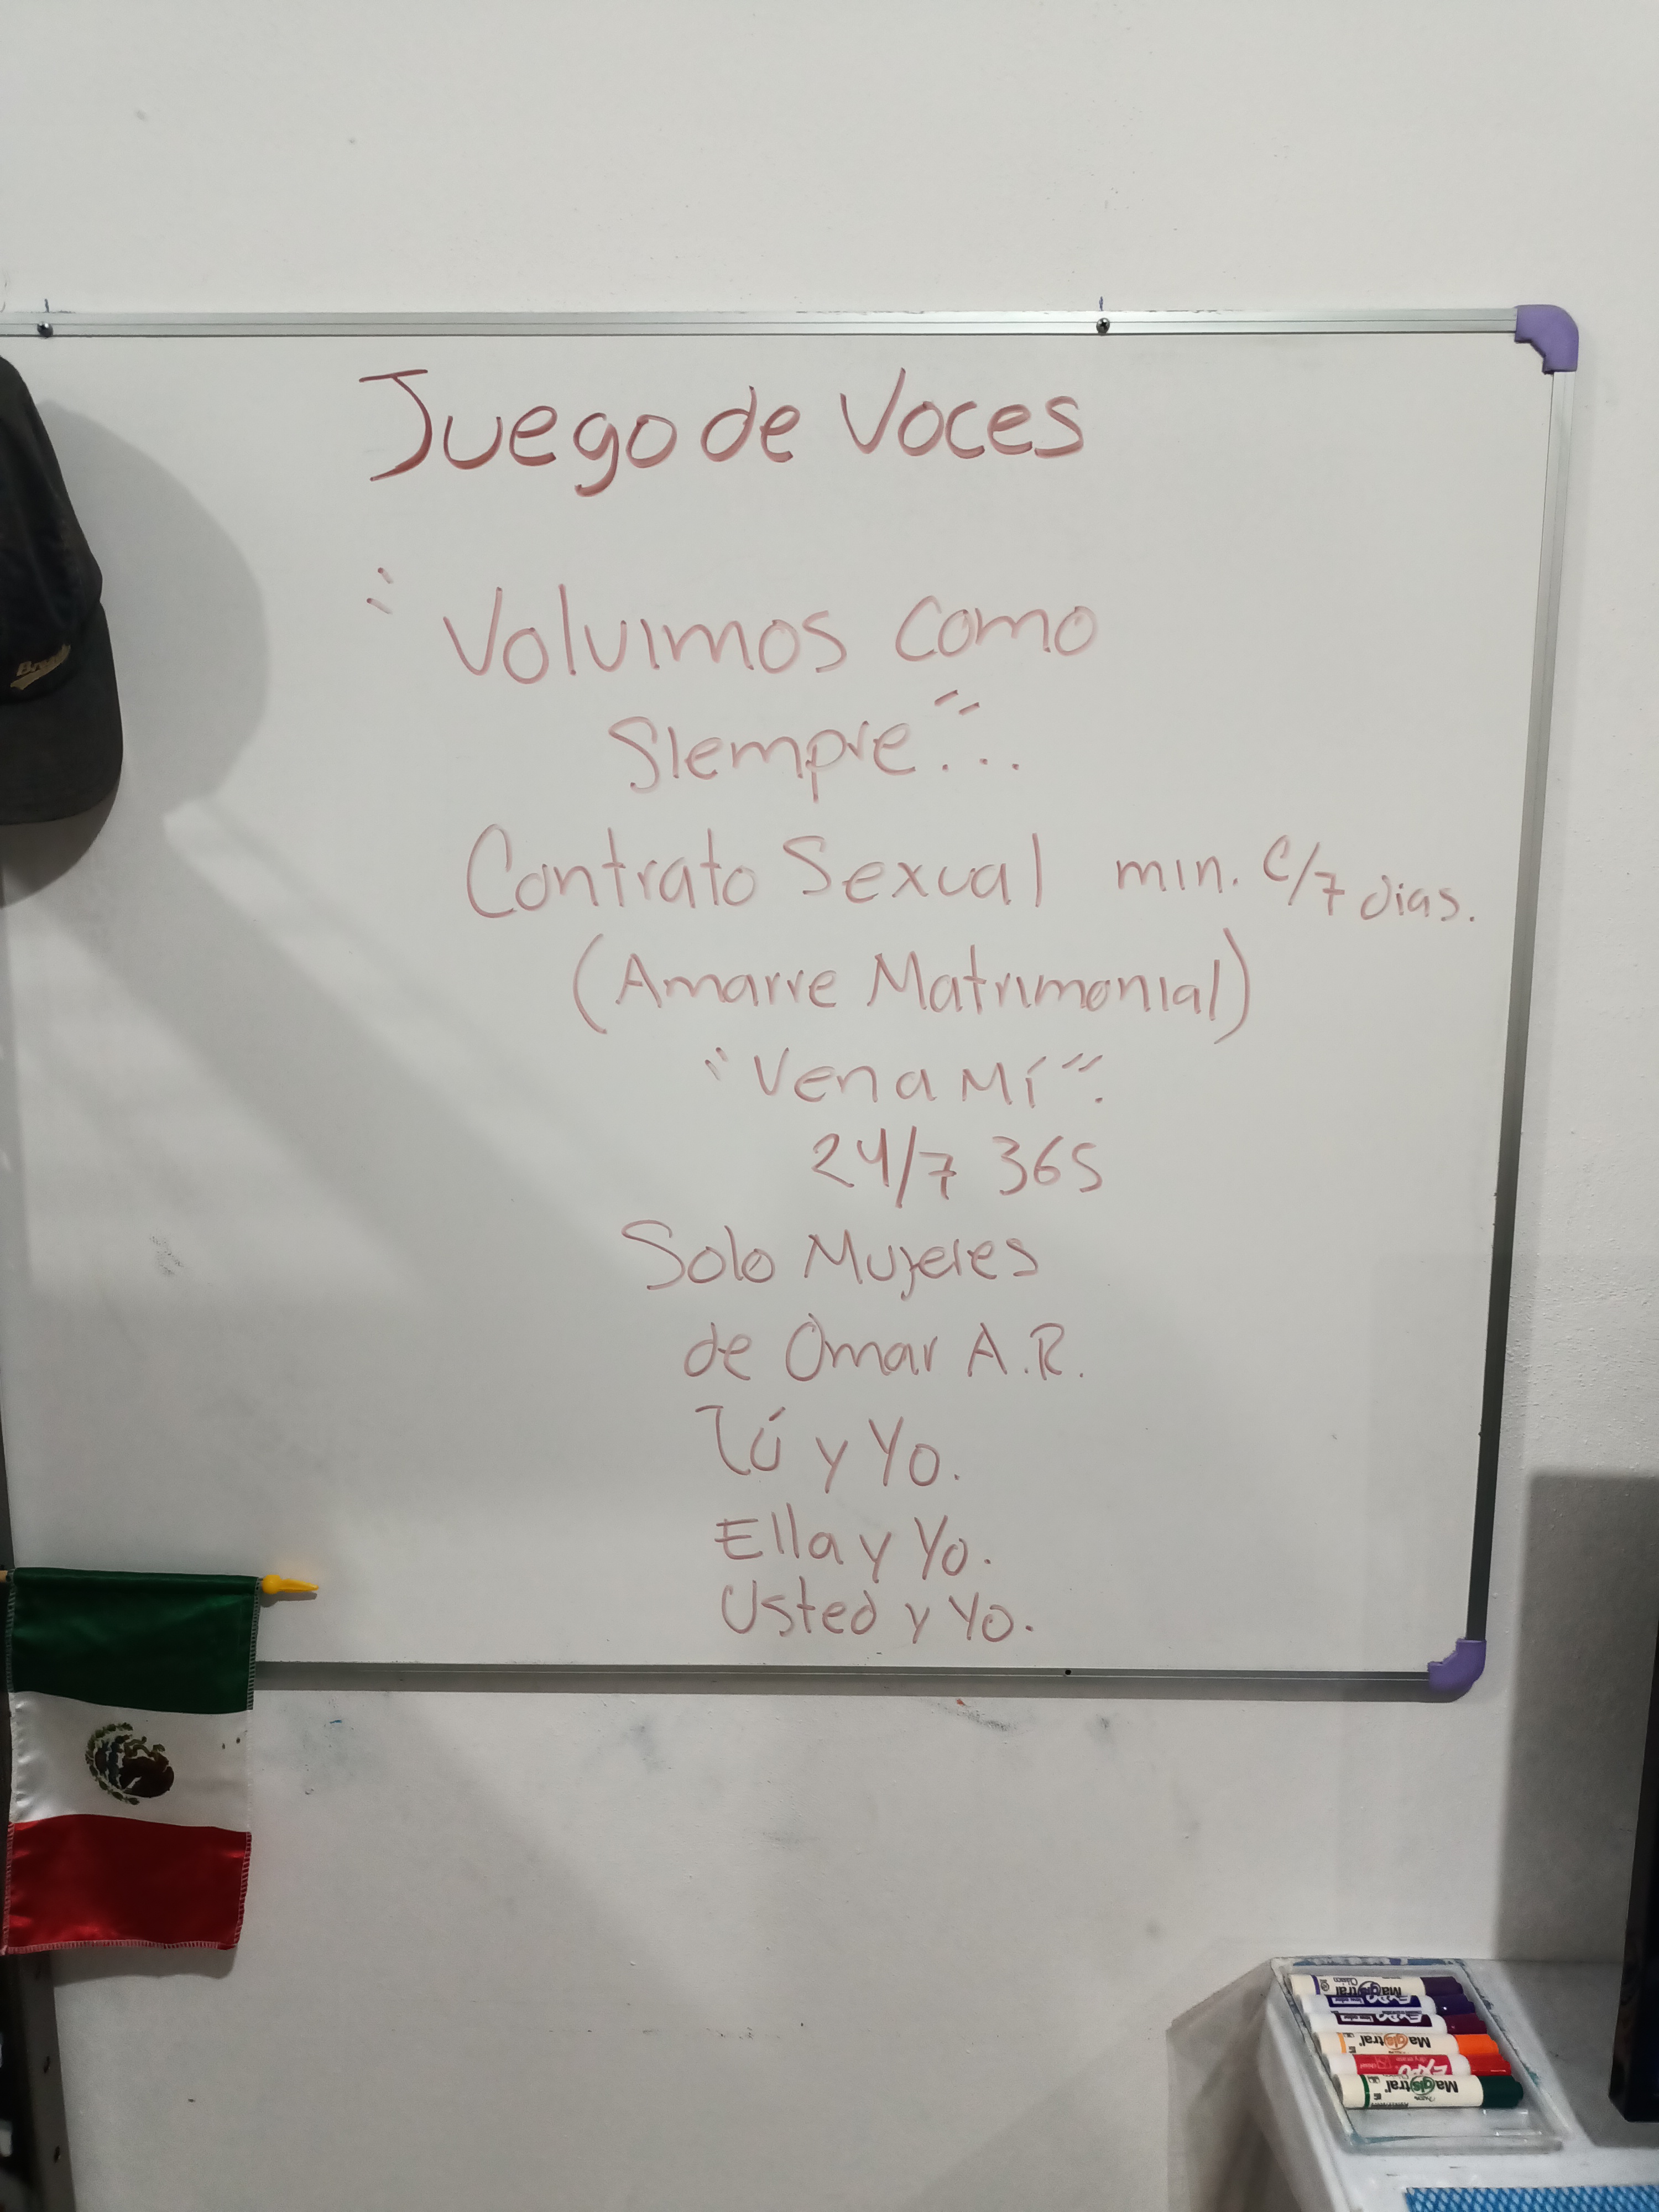 Juego de Voces
"Volvimos como
Siempre"...
Contrato Sexual min. c/7 dias.
(Amarre Matrimonial)
"Ven a Mí".
24/7 365
Solo Mujeres
de Omar A.R.
Tú y Yo.
Ella y Yo.
Usted y Yo.
Magistral
EXPO
EXPO
Magistral
EXPO
Magistral